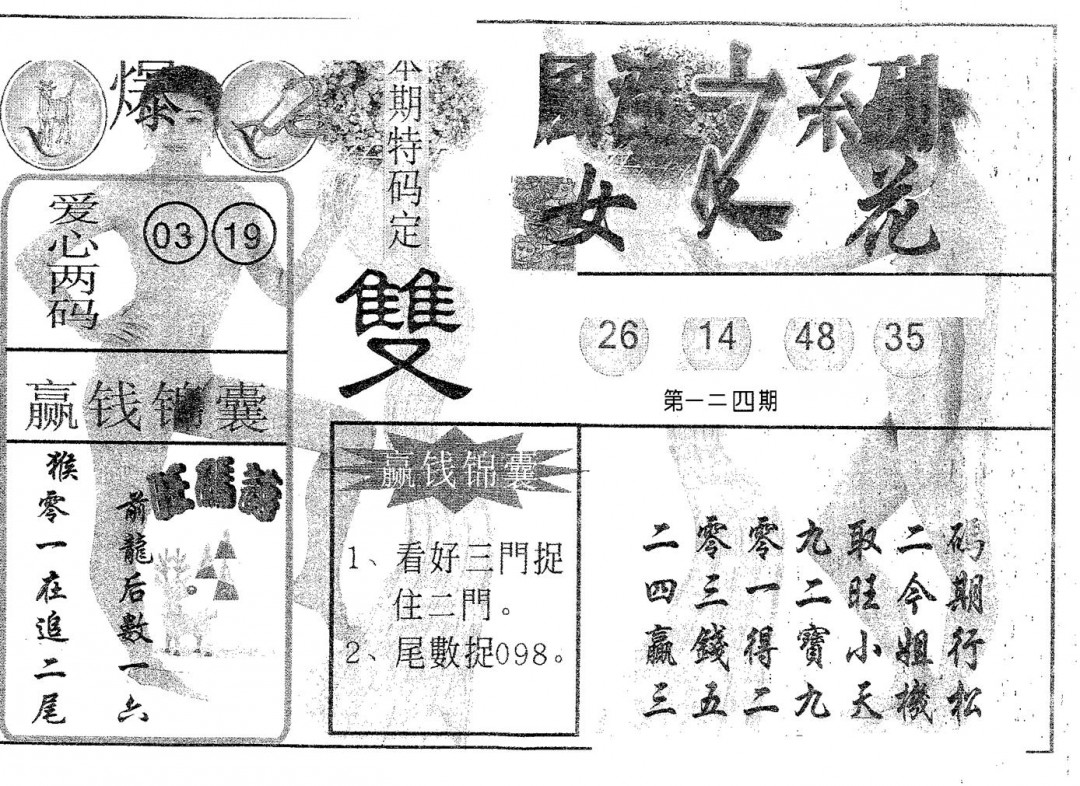 爆
本期特码定
雙
系列
女人花
爱心两码
03 19
26 14 48 35
第一二四期
赢钱锦囊
旺碼詩
前龍后數一六
猴零一在追二尾
赢钱锦囊
1、看好三門捉
住二門。
2、尾數捉098。
码期行松
二今姐機
取旺小天
九二寶九
零一得二
零三錢五
二四贏三